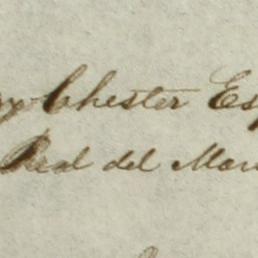 Chester Esq
Real del Mon